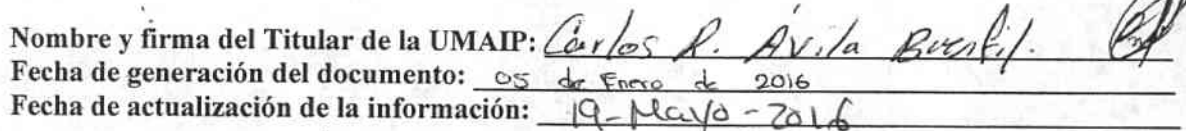 Nombre y firma del Titular de la UMAIP: Carlos R. Ávila Buenfil.
Fecha de generación del documento: 05 de Enero de 2016
Fecha de actualización de la información: 19-Mayo-2016